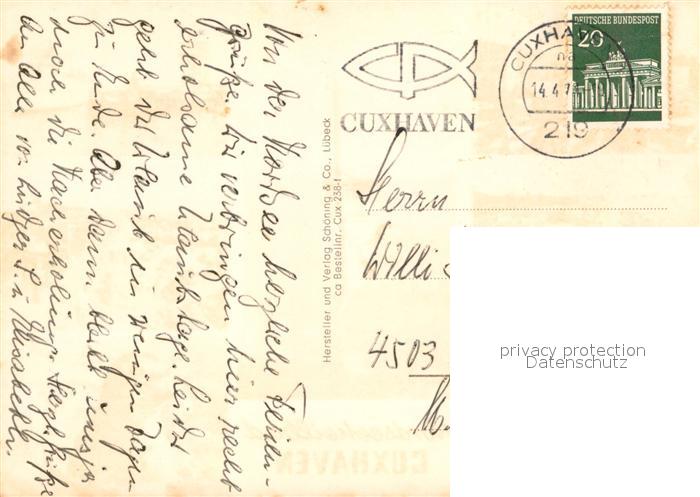 Von der Nordsee herzliche Ferien-
grüße. Wir verbringen hier recht
erholsame Urlaubstage. Leider
geht der Urlaub in wenigen Tagen
zu Ende. Aber dann bleibt uns ja
noch die Nacherholung. Herzl. Grüße
an Alle von
CUXHAVEN
CUXHAVEN
14.4.7
219
DEUTSCHE BUNDESPOST
20
Hersteller und Verlag Schöning & Co., Lübeck
ca Bestellnr. Cux 238-1
Herrn
Willi
4503
privacy protection
Datenschutz
CUXHAVEN